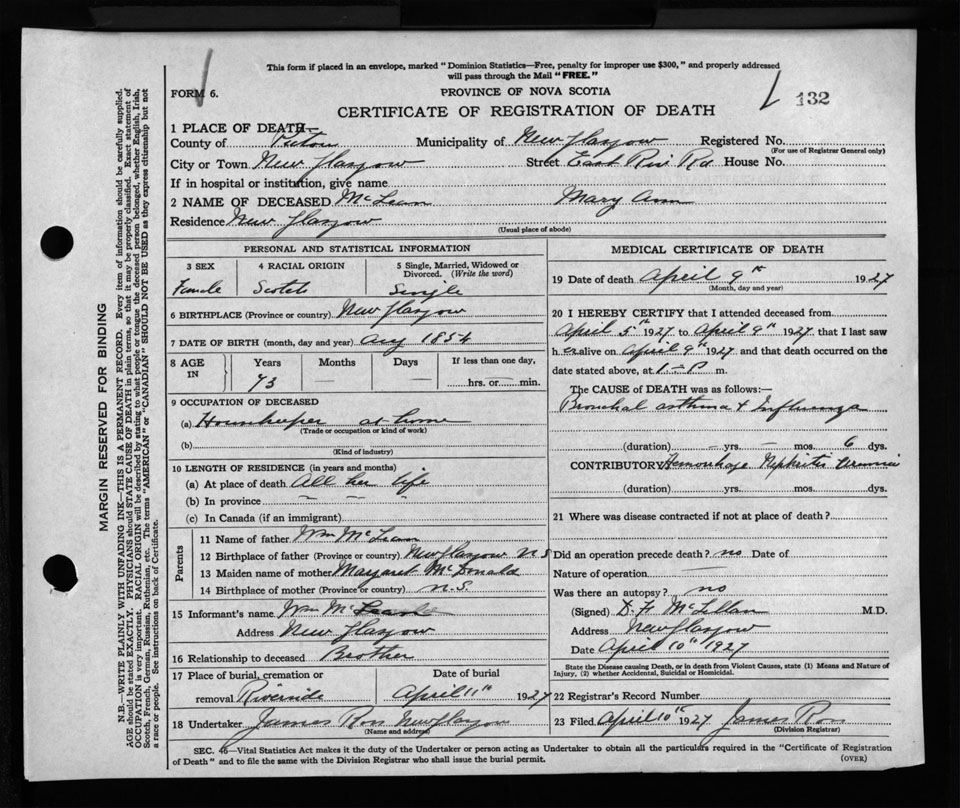 This form if placed in an envelope, marked "Dominion Statistics—Free, penalty for improper use $300," and properly addressed
will pass through the Mail "FREE."
FORM 6.
PROVINCE OF NOVA SCOTIA
132
CERTIFICATE OF REGISTRATION OF DEATH
1 PLACE OF DEATH—
County of Pictou Municipality of New Glasgow Registered No.
(For use of Registrar General only)
City or Town New Glasgow Street East Riv Rd House No.
If in hospital or institution, give name
2 NAME OF DECEASED McLean Mary Ann
Residence New Glasgow
(Usual place of abode)
PERSONAL AND STATISTICAL INFORMATION
3 SEX 4 RACIAL ORIGIN 5 Single, Married, Widowed or
Divorced. (Write the word)
Female Scotch Single
6 BIRTHPLACE (Province or country) New Glasgow
7 DATE OF BIRTH (month, day and year) Aug 1854
8 AGE IN Years Months Days If less than one day,
73 — — hrs. or — min.
9 OCCUPATION OF DECEASED
(a) Housekeeper at home
(Trade or occupation or kind of work)
(b)
(Kind of industry)
10 LENGTH OF RESIDENCE (in years and months)
(a) At place of death All her life
(b) In province — — —
(c) In Canada (if an immigrant)
Parents
11 Name of father Wm McLean
12 Birthplace of father (Province or country) New Glasgow N S
13 Maiden name of mother Margaret McDonald
14 Birthplace of mother (Province or country) N.S.
15 Informant's name Wm McLean
Address New Glasgow
16 Relationship to deceased Brother
17 Place of burial, cremation or Date of burial
removal Riverside April 11th 1927
18 Undertaker James Ross New Glasgow
(Name and address)
MEDICAL CERTIFICATE OF DEATH
19 Date of death April 9th 1927
(Month, day and year)
20 I HEREBY CERTIFY that I attended deceased from
April 5th 1927 to April 9th 1927, that I last saw
h er alive on April 9th 1927 and that death occurred on the
date stated above, at 1 — P m.
The CAUSE of DEATH was as follows:—
Bronchal asthma & Influenza
(duration) — yrs. — mos. 6 dys.
CONTRIBUTORY Hemorrhage Nephritis Uremia
(duration) yrs. mos. dys.
21 Where was disease contracted if not at place of death?
Did an operation precede death? no Date of
Nature of operation —
Was there an autopsy? no
(Signed) D. F McLellan M.D.
Address New Glasgow
Date April 10th 1927
State the Disease causing Death, or in death from Violent Causes, state (1) Means and Nature of
Injury, (2) whether Accidental, Suicidal or Homicidal.
22 Registrar's Record Number
23 Filed April 10th 1927 James Ross
(Division Registrar)
SEC. 46—Vital Statistics Act makes it the duty of the Undertaker or person acting as Undertaker to obtain all the particulars required in the "Certificate of Registration
of Death" and to file the same with the Division Registrar who shall issue the burial permit.
(OVER)
MARGIN RESERVED FOR BINDING
N.B.—WRITE PLAINLY WITH UNFADING INK—THIS IS A PERMANENT RECORD. Every item of information should be carefully supplied.
AGE should be stated EXACTLY. PHYSICIANS should STATE CAUSE OF DEATH in plain terms, so that it may be properly classified. Exact statement of
OCCUPATION is very important. RACIAL ORIGIN will be described by stating to what people or tongue the deceased person belonged, whether English, Irish,
Scotch, French, German, Russian, Ruthenian, etc. The terms "AMERICAN" or "CANADIAN" SHOULD NOT BE USED as they express citizenship but not
a race or people. See instructions on back of Certificate.